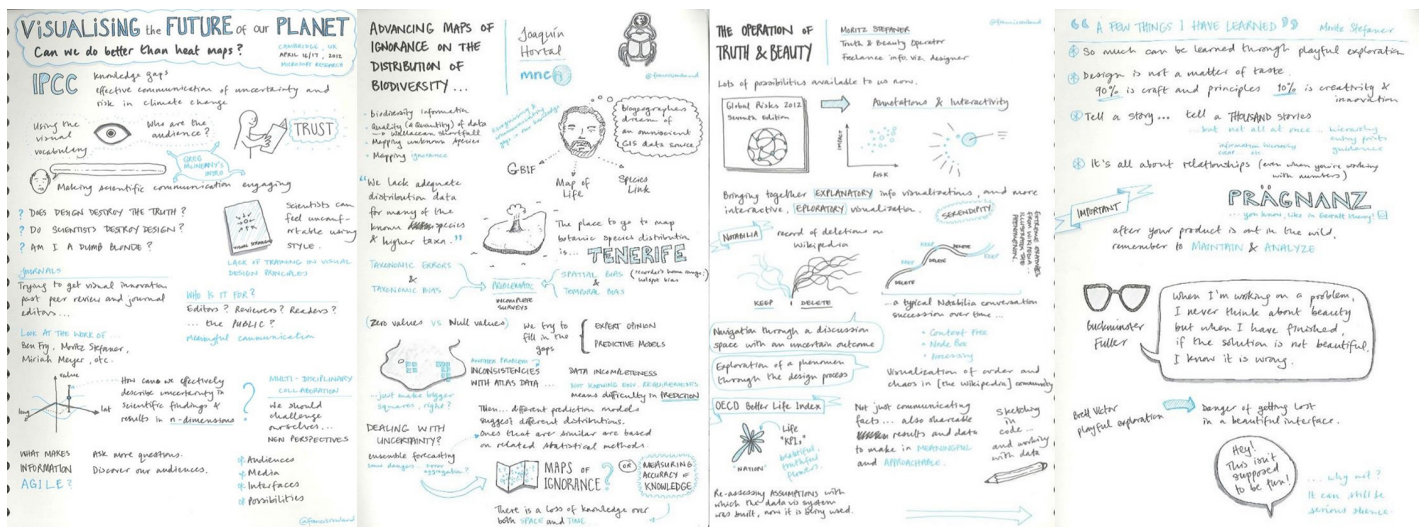 VISUALISING the FUTURE of our PLANET
Can we do better than heat maps?
CAMBRIDGE, UK
APRIL 16/17, 2012
MICROSOFT RESEARCH
IPCC
knowledge gaps
effective communication of uncertainty and
risk in climate change
Using the
visual
vocabulary
Who are the
audience?
TRUST
GREG
McINERNY'S
INTRO
Making scientific communication engaging
? DOES DESIGN DESTROY THE TRUTH?
? DO SCIENTISTS DESTROY DESIGN?
? AM I A DUMB BLONDE?
Scientists can
feel uncomf-
ortable using
STYLE.
LACK OF TRAINING IN VISUAL
DESIGN PRINCIPLES
JOURNALS
Trying to get visual innovation
past peer review and journal
editors...
WHO IS IT FOR?
Editors? Reviewers? Readers?
... the PUBLIC?
Meaningful communication
LOOK AT THE WORK OF...
Ben Fry, Moritz Stefaner,
Miriah Meyer, etc.
value
long
lat
How can we effectively
describe uncertainty in
scientific findings &
results in n-dimensions
?
MULTI-DISCIPLINARY
COLLABORATION
We should
challenge
ourselves...
NEW PERSPECTIVES
WHAT MAKES
INFORMATION
AGILE?
Ask more questions.
Discover our audiences.
Audiences
Media
Interfaces
Possibilities
@francisrowland
ADVANCING MAPS OF
IGNORANCE ON THE
DISTRIBUTION OF
BIODIVERSITY...
Joaquín
Hortal
mncn
@francisrowland
- biodiversity information
- Quality (& Quantity) of data
→ Wallacean shortfall
- Mapping unknown species
- Mapping ignorance
Biogeographers
dream of
an omniscient
GIS data source
GBIF
Map of
Life
Species
Link
"We lack adequate
distribution data
for many of the
known species
& higher taxa."
The place to go to map
botanic species distribution
is... TENERIFE
TAXONOMIC ERRORS
&
TAXONOMIC BIAS
PROBLEMATIC
INCOMPLETE
SURVEYS
SPATIAL BIAS
&
TEMPORAL BIAS
(recorder's home range;
hotspot bias)
(Zero values vs Null values)
We try to
fill in the
gaps
EXPERT OPINION
PREDICTIVE MODELS
...just make bigger
squares, right?
ANOTHER PROBLEM?
INCONSISTENCIES
WITH ATLAS DATA...
DATA INCOMPLETENESS
NOT KNOWING ENV. REQUIREMENTS
means difficulty in PREDICTION
Then... different prediction models
suggest different distributions.
Ones that are similar are based
on related statistical methods.
DEALING WITH
UNCERTAINTY?
ensemble forecasting
some dangers... over
aggregation?
MAPS OF
IGNORANCE?
OR
MEASURING
ACCURACY OF
KNOWLEDGE
There is a loss of knowledge over
both SPACE and TIME...
THE OPERATION OF
TRUTH & BEAUTY
MORITZ STEFANER
Truth & Beauty Operator
Freelance info. viz. designer
@francisrowland
Lots of possibilities available to us now.
Global Risks 2012
Seventh Edition
Annotations & Interactivity
IMPACT
RISK
Bringing together EXPLANATORY info visualizations, and more
interactive, EPLORATORY visualization.
SERENDIPITY
NOTABILIA
record of deletions on
Wikipedia
KEEP
DELETE
KEEP
DELETE
KEEP
DELETE
DELETE
...a typical Notabilia conversation
succession over time...
Navigation through a discussion
space with an uncertain outcome
Exploration of a phenomen
through the design process
Context Free
Node Box
Processing
Visualization of order and
chaos in [the wikipedia] community
OECD Better Life Index
Life
"KPIs"
"NATION"
beautiful,
truthful
flowers.
Not just communicating
facts... also shareable
results and data
to make in MEANINGFUL
and APPROACHABLE.
Sketching
in
code...
and working
with data
Re-assessing ASSUMPTIONS with
which the data vis system
was built, now it is being used.
"A FEW THINGS I HAVE LEARNED"
Moritz Stefaner
So much can be learned through playful exploration
Design is not a matter of taste.
90% is craft and principles 10% is creativity &
innovation
Tell a story... tell a THOUSAND stories
but not all at once... hierarchy
entry points
guidance
It's all about relationships (even when you're working
with numbers)
IMPORTANT
PRÄGNANZ
... you know, like in Gestalt theory!
after your product is out in the wild,
remember to MAINTAIN & ANALYZE
Buckminster
Fuller
When I'm working on a problem,
I never think about beauty
but when I have finished,
if the solution is not beautiful,
I know it is wrong.
Brett Victor
playful exploration
Danger of getting lost
in a beautiful interface.
Hey!
This isn't
supposed
to be fun!
... why not?
It can still be
serious science.